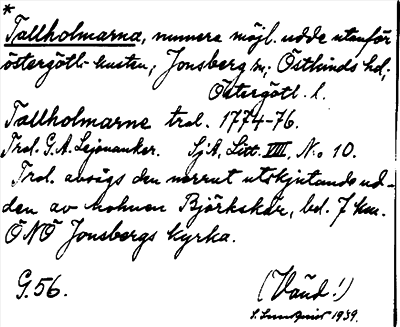 *
Tallholmarna, numera möjl. udde utanför
östergötl-kusten, Jonsberg sn, Östkinds hd,
Östergötl. l.
Tallholmarne trol. 1774-76.
Trol. G. A. Lejonanker. SjA, Litt. VIII, No 10.
Trol. avsågs den norrut utskjutande ud-
den av holmen Björkskär, bel. 7 km.
ÖNÖ Jonsbergs kyrka.
G. 56. (Vañd!)
1939.